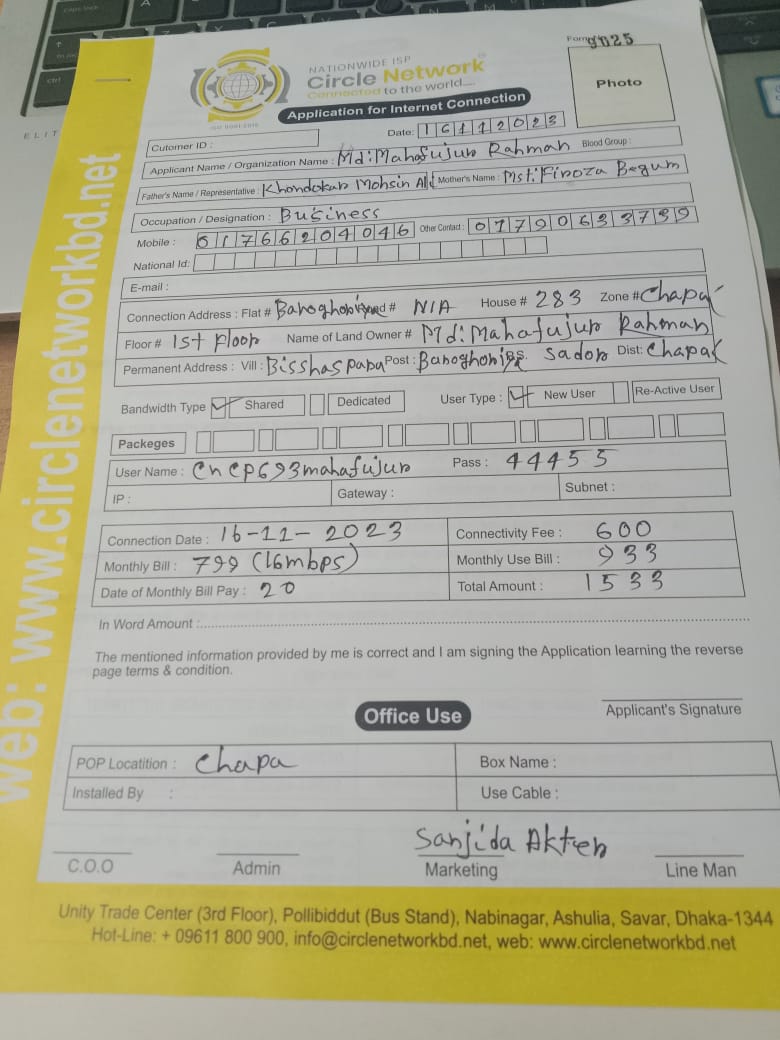 NATIONWIDE ISP
Circle Network
Connected to the world....
ISO 9001:2015
Form
9025
Photo
Application for Internet Connection
Date: 16112023
Cutomer ID :
Applicant Name / Organization Name : Md: Mahafujur Rahman Blood Group :
Father's Name / Representative : Khondokar Mohsin Ali Mother's Name : Mst: Firoza Begum
Occupation / Designation : Business
Mobile : 01766204046 Other Contact : 01790633739
National Id:
E-mail :
Connection Address : Flat # N/A House # 283 Zone # Chapa
Floor # 1st Floor Name of Land Owner # Md: Mahafujur Rahman
Permanent Address : Vill : Bisshaspara Post : Sador Dist: Chapai
Bandwidth Type Shared Dedicated User Type : New User Re-Active User
Packeges
User Name : cncp693mahafujur Pass : 44455
IP : Gateway : Subnet :
Connection Date : 16-11-2023 Connectivity Fee : 600
Monthly Bill : 799 (16mbps) Monthly Use Bill : 933
Date of Monthly Bill Pay : 20 Total Amount : 1533
In Word Amount :
The mentioned information provided by me is correct and I am signing the Application learning the reverse
page terms & condition.
Applicant's Signature
Office Use
POP Locatition : Chapa Box Name :
Installed By : Use Cable :
Sanjida Akter
C.O.O Admin Marketing Line Man
Unity Trade Center (3rd Floor), Pollibiddut (Bus Stand), Nabinagar, Ashulia, Savar, Dhaka-1344
Hot-Line: + 09611 800 900, info@circlenetworkbd.net, web: www.circlenetworkbd.net
web: www.circlenetworkbd.net